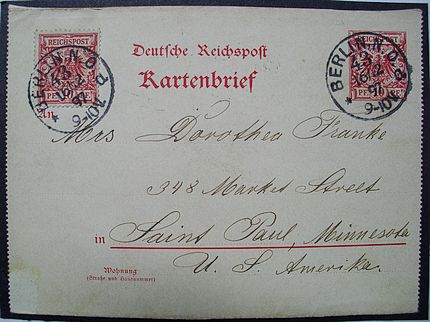 REICHSPOST
10 10
PFENNIG
BERLIN.N.O.
43
9-10V.
*
Deutsche Reichspost
Kartenbrief
REICHSPOST
10 10
PFENNIG
BERLIN.N.O.
43
9-10V.
*
An
Mrs Dorothea Franke
348 Market Street
in Saint Paul, Minnesota
U. S. Amerika.
Wohnung
(Straße und Hausnummer)